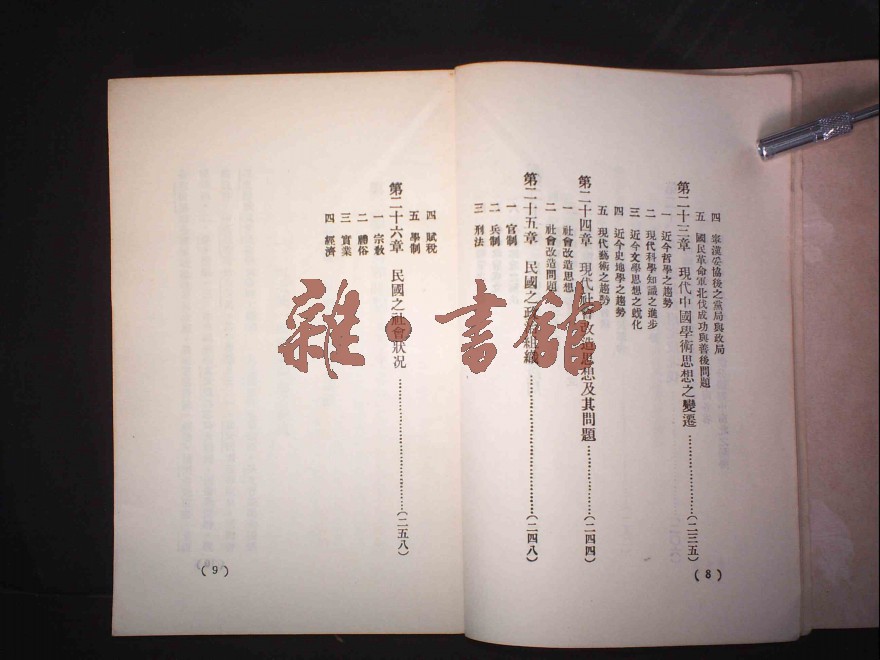 四 寧漢妥協後之黨局與政局
五 國民革命軍北伐成功與善後問題
第二十三章 現代中國學術思想之變遷………………(二三五)
一 近今哲學之趨勢
二 現代科學知識之進步
三 近今文學思想之戲化
四 近今史地學之趨勢
五 現代藝術之趨勢
第二十四章 現代社會改造思想及其問題………………(二四四)
一 社會改造思想
二 社會改造問題
第二十五章 民國之政治組織………………(二四八)
一 官制
二 兵制
三 刑法
(8)
四 賦税
五 學制
第二十六章 民國之社會狀况………………(二五八)
一 宗敎
二 禮俗
三 實業
四 經濟
(9)
雜·書館